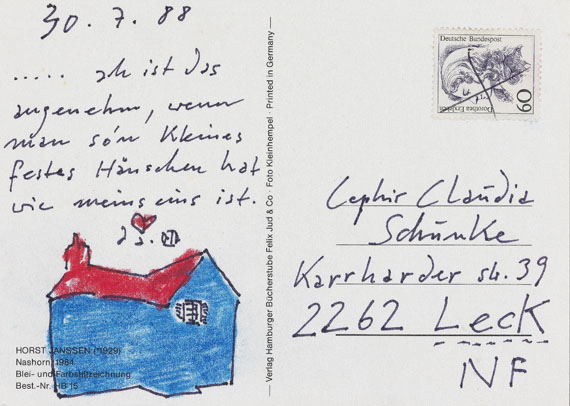 30.7.88
..... ah ist das
angenehm, wenn
man so'n kleines
festes Häuschen hat
wie meins eins ist.
HORST JANSSEN (*1929)
Nashorn, 1984
Blei- und Farbstiftzeichnung
Best.-Nr. HB 15
— Verlag Hamburger Bücherstube Felix Jud & Co · Foto Kleinhempel · Printed in Germany —
Deutsche Bundespost
60
Dorothea Erxleben
Claudia
Schünke
Karrharder str. 39
2262 Leck
NF